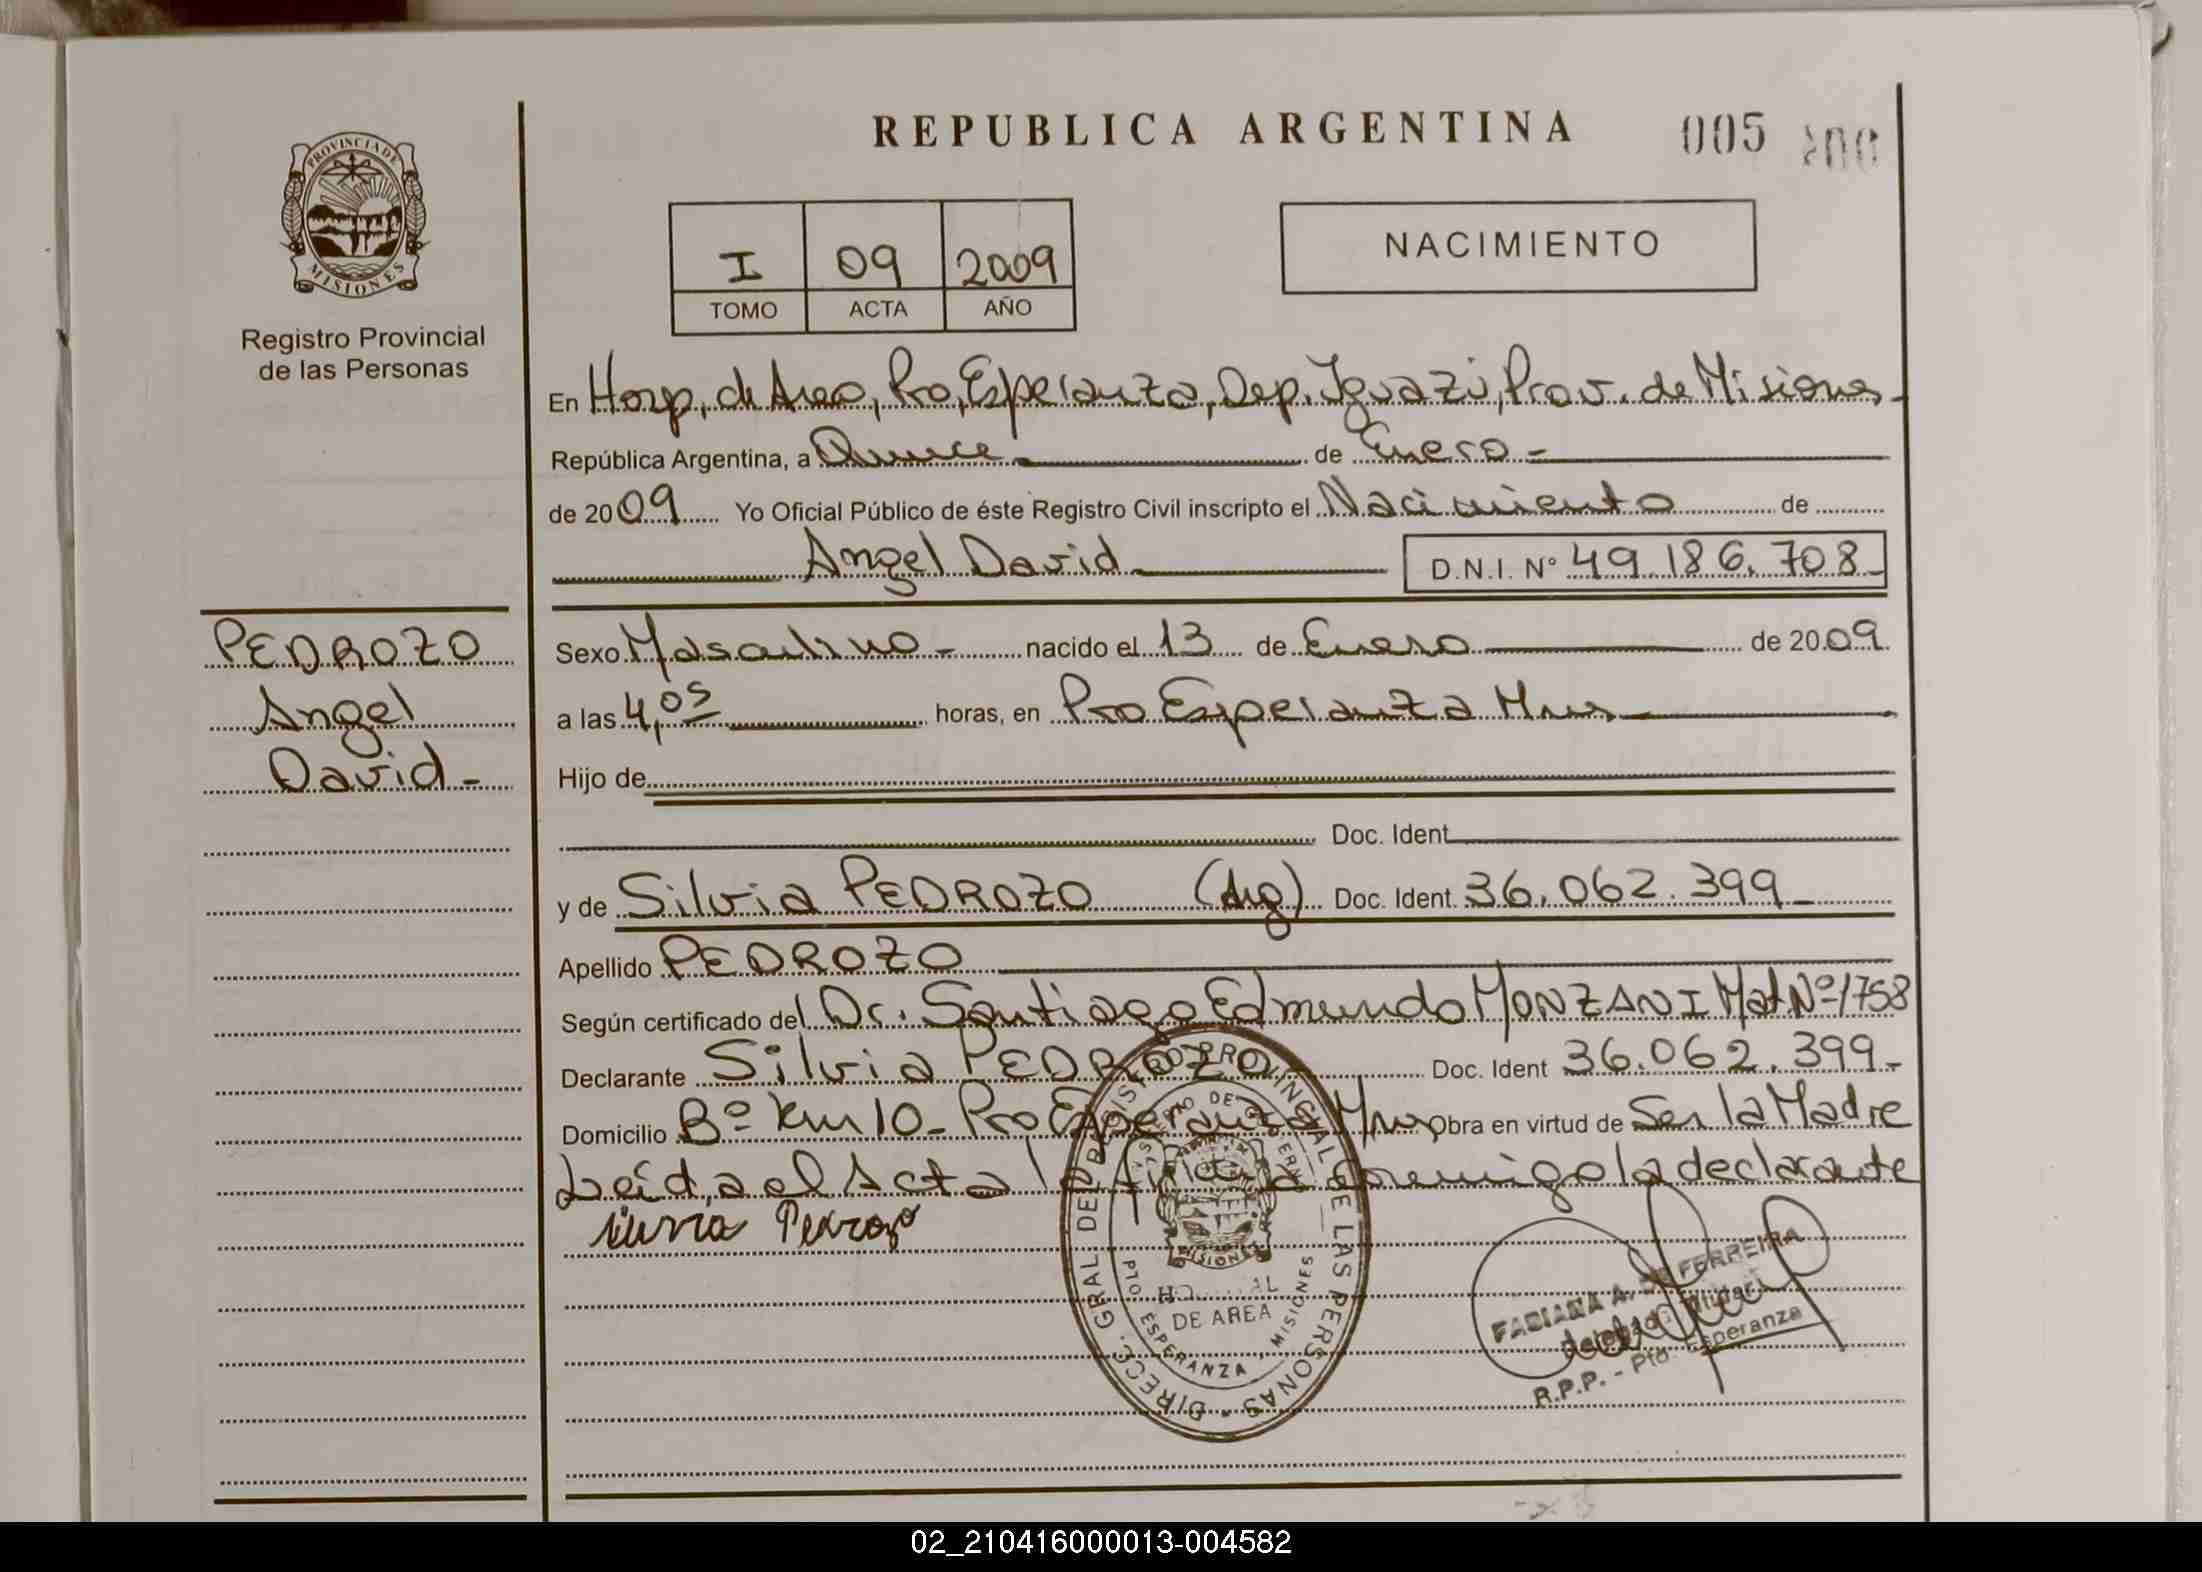 REPUBLICA ARGENTINA
005
PROVINCIA DE
MISIONES
Registro Provincial
de las Personas
I 09 2009
TOMO ACTA AÑO
NACIMIENTO
En Hosp. de Area, Pto, Esperanza, Dep. Iguazú, Prov. de Misiones
República Argentina, a Quince de Enero
de 2009 Yo Oficial Público de éste Registro Civil inscripto el Nacimiento de
Angel David D.N.I. Nº 49.186.708
PEDROZO
Angel
David
Sexo Masculino nacido el 13 de Enero de 2009
a las 4,05 horas, en Pto Esperanza Mnes
Hijo de
Doc. Ident
y de Silvia PEDROZO (Arg) Doc. Ident. 36.062.399
Apellido PEDROZO
Según certificado del Dr. Santiago Edmundo MONZANI Mat Nº 1758
Declarante Silvia PEDROZO Doc. Ident 36.062.399
Domicilio Bº Km 10 - Pto Esperanza Mnes Obra en virtud de Ser la Madre
Leída el Acta la conmigo la declarante
Pedrozo
DIRECC. GRAL DEL REGISTRO PROVINCIAL DE LAS PERSONAS
MINISTERIO DE GOBIERNO
MISIONES
DE AREA
PTO ESPERANZA, MISIONES
FABIANA A. DE FERREIRA
R.P.P. - Pto. Esperanza
02_210416000013-004582